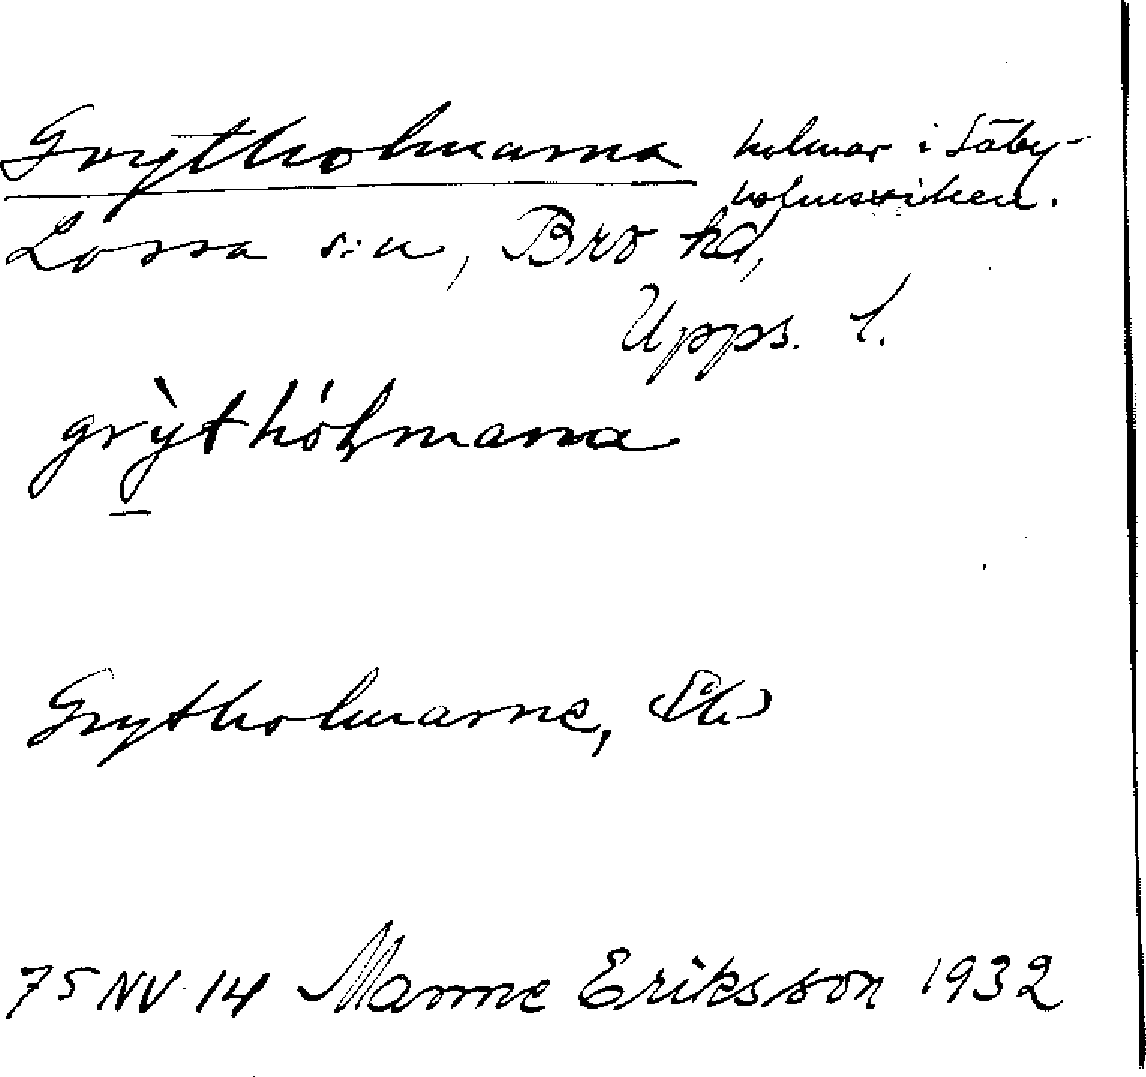 Grytholmarna holmar i Säby-
holmsviken.
Lossa s:n, Bro hd,
Upps. l.
grỳthólmana
Grytholmarne,
75 NV 14 Manne Eriksson 1932